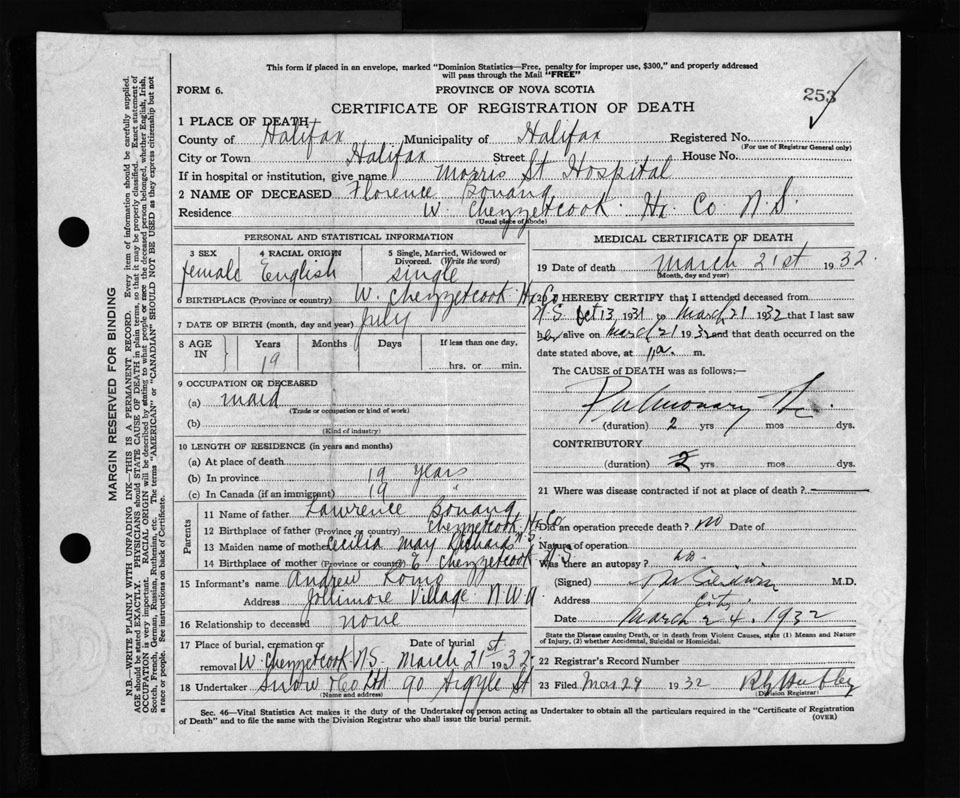 This form if placed in an envelope, marked "Dominion Statistics—Free, penalty for improper use, $300," and properly addressed
will pass through the Mail "FREE"
FORM 6.
PROVINCE OF NOVA SCOTIA
253
CERTIFICATE OF REGISTRATION OF DEATH
1 PLACE OF DEATH
County of Halifax Municipality of Halifax Registered No.
(For use of Registrar General only)
City or Town Halifax Street House No.
If in hospital or institution, give name Morris St Hospital
2 NAME OF DECEASED Florence
Residence W. Chezzetcook. Hx. Co N.S.
(Usual place of abode)
PERSONAL AND STATISTICAL INFORMATION
3 SEX
female
4 RACIAL ORIGIN
English
5 Single, Married, Widowed or
Divorced. (Write the word)
single
6 BIRTHPLACE (Province or country) W. Chezzetcook. Hx Co
N.S.
7 DATE OF BIRTH (month, day and year) July
8 AGE
IN
Years
19
Months
Days
If less than one day,
hrs. or min.
9 OCCUPATION OF DECEASED
(a) maid
(Trade or occupation or kind of work)
(b)
(Kind of industry)
10 LENGTH OF RESIDENCE (in years and months)
(a) At place of death
(b) In province 19 years
(c) In Canada (if an immigrant) 19 "
Parents
11 Name of father Lawrence
12 Birthplace of father (Province or country) Chezzetcook. Hx Co
N.S.
13 Maiden name of mother Cecilia May
14 Birthplace of mother (Province or country) E Chezzetcook N.S
15 Informant's name Andrew
Address Jollimore Village N.W.A
16 Relationship to deceased none
17 Place of burial, cremation or
removal W. Chezzetcook N.S.
Date of burial
March 21st 1932
18 Undertaker Snow & Co Ltd 90 Argyle St
(Name and address)
MEDICAL CERTIFICATE OF DEATH
19 Date of death March 21st 1932.
(Month, day and year)
20 I HEREBY CERTIFY that I attended deceased from
Oct 13 1931 to March 21 1932 that I last saw
her alive on March 21 1932 and that death occurred on
date stated above, at 11 a. m.
The CAUSE of DEATH was as follows:—
Pulmonary
(duration) 2 yrs mos dys.
CONTRIBUTORY
(duration) 2 yrs mos dys.
21 Where was disease contracted if not at place of death?
Did an operation precede death? no Date of
Nature of operation
Was there an autopsy? no.
(Signed) M.D.
Address City.
Date March 24. 1932
State the Disease causing Death, or in death from Violent Causes, state (1) Means and Nature
of Injury, (2) whether Accidental, Suicidal or Homicidal.
22 Registrar's Record Number
23 Filed Mar 29 1932
(Division Registrar)
Sec. 46—Vital Statistics Act makes it the duty of the Undertaker or person acting as Undertaker to obtain all the particulars required in the "Certificate of Registration
of Death" and to file the same with the Division Registrar who shall issue the burial permit.
(OVER)
MARGIN RESERVED FOR BINDING
N.B.—WRITE PLAINLY WITH UNFADING INK—THIS IS A PERMANENT RECORD. Every item of information should be carefully supplied.
AGE should be stated EXACTLY. PHYSICIANS should STATE CAUSE OF DEATH in plain terms, so that it may be properly classified. Exact statement of
OCCUPATION is very important. RACIAL ORIGIN will be described by stating to what people or race the deceased person belonged, whether English, Irish,
Scotch, French, German, Russian, Ruthenian, etc. The terms "AMERICAN" or "CANADIAN" SHOULD NOT BE USED as they express citizenship but not
a race or people. See instructions on back of Certificate.